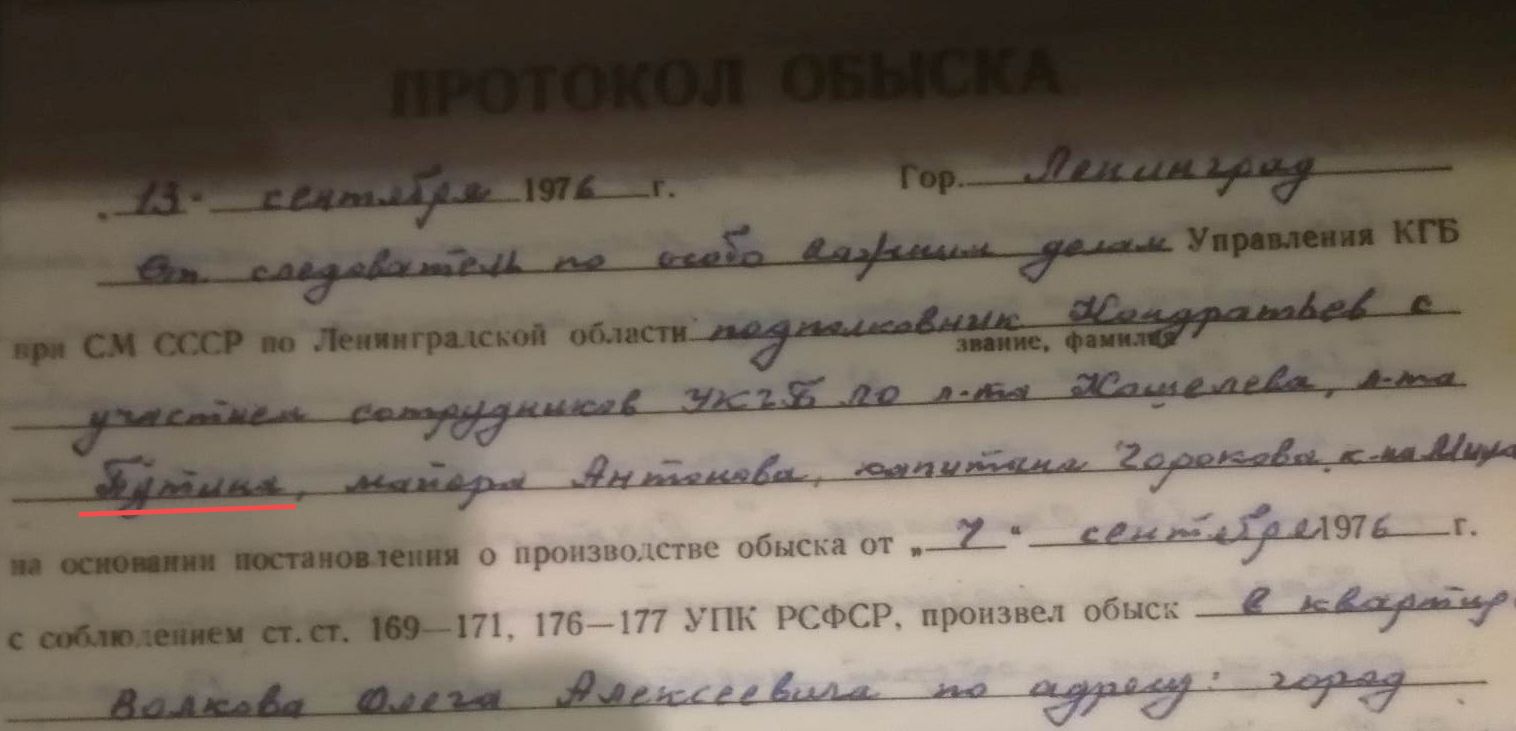 ПРОТОКОЛ ОБЫСКА
„13“ сентября 1976 г. Гор. Ленинград
Ст. следователь по особо важным делам Управления КГБ
при СМ СССР по Ленинградской области подполковник Кондратьев с
звание, фамилия
участием сотрудников УКГБ ЛО л-та Кошелева, л-та
Путина, майора Антонова, капитана Горокова, к-на
на основании постановления о производстве обыска от „7“ сентября 1976 г.
с соблюдением ст. ст. 169—171, 176—177 УПК РСФСР, произвел обыск в квартир
Волкова Олега Алексеевича по адресу: город